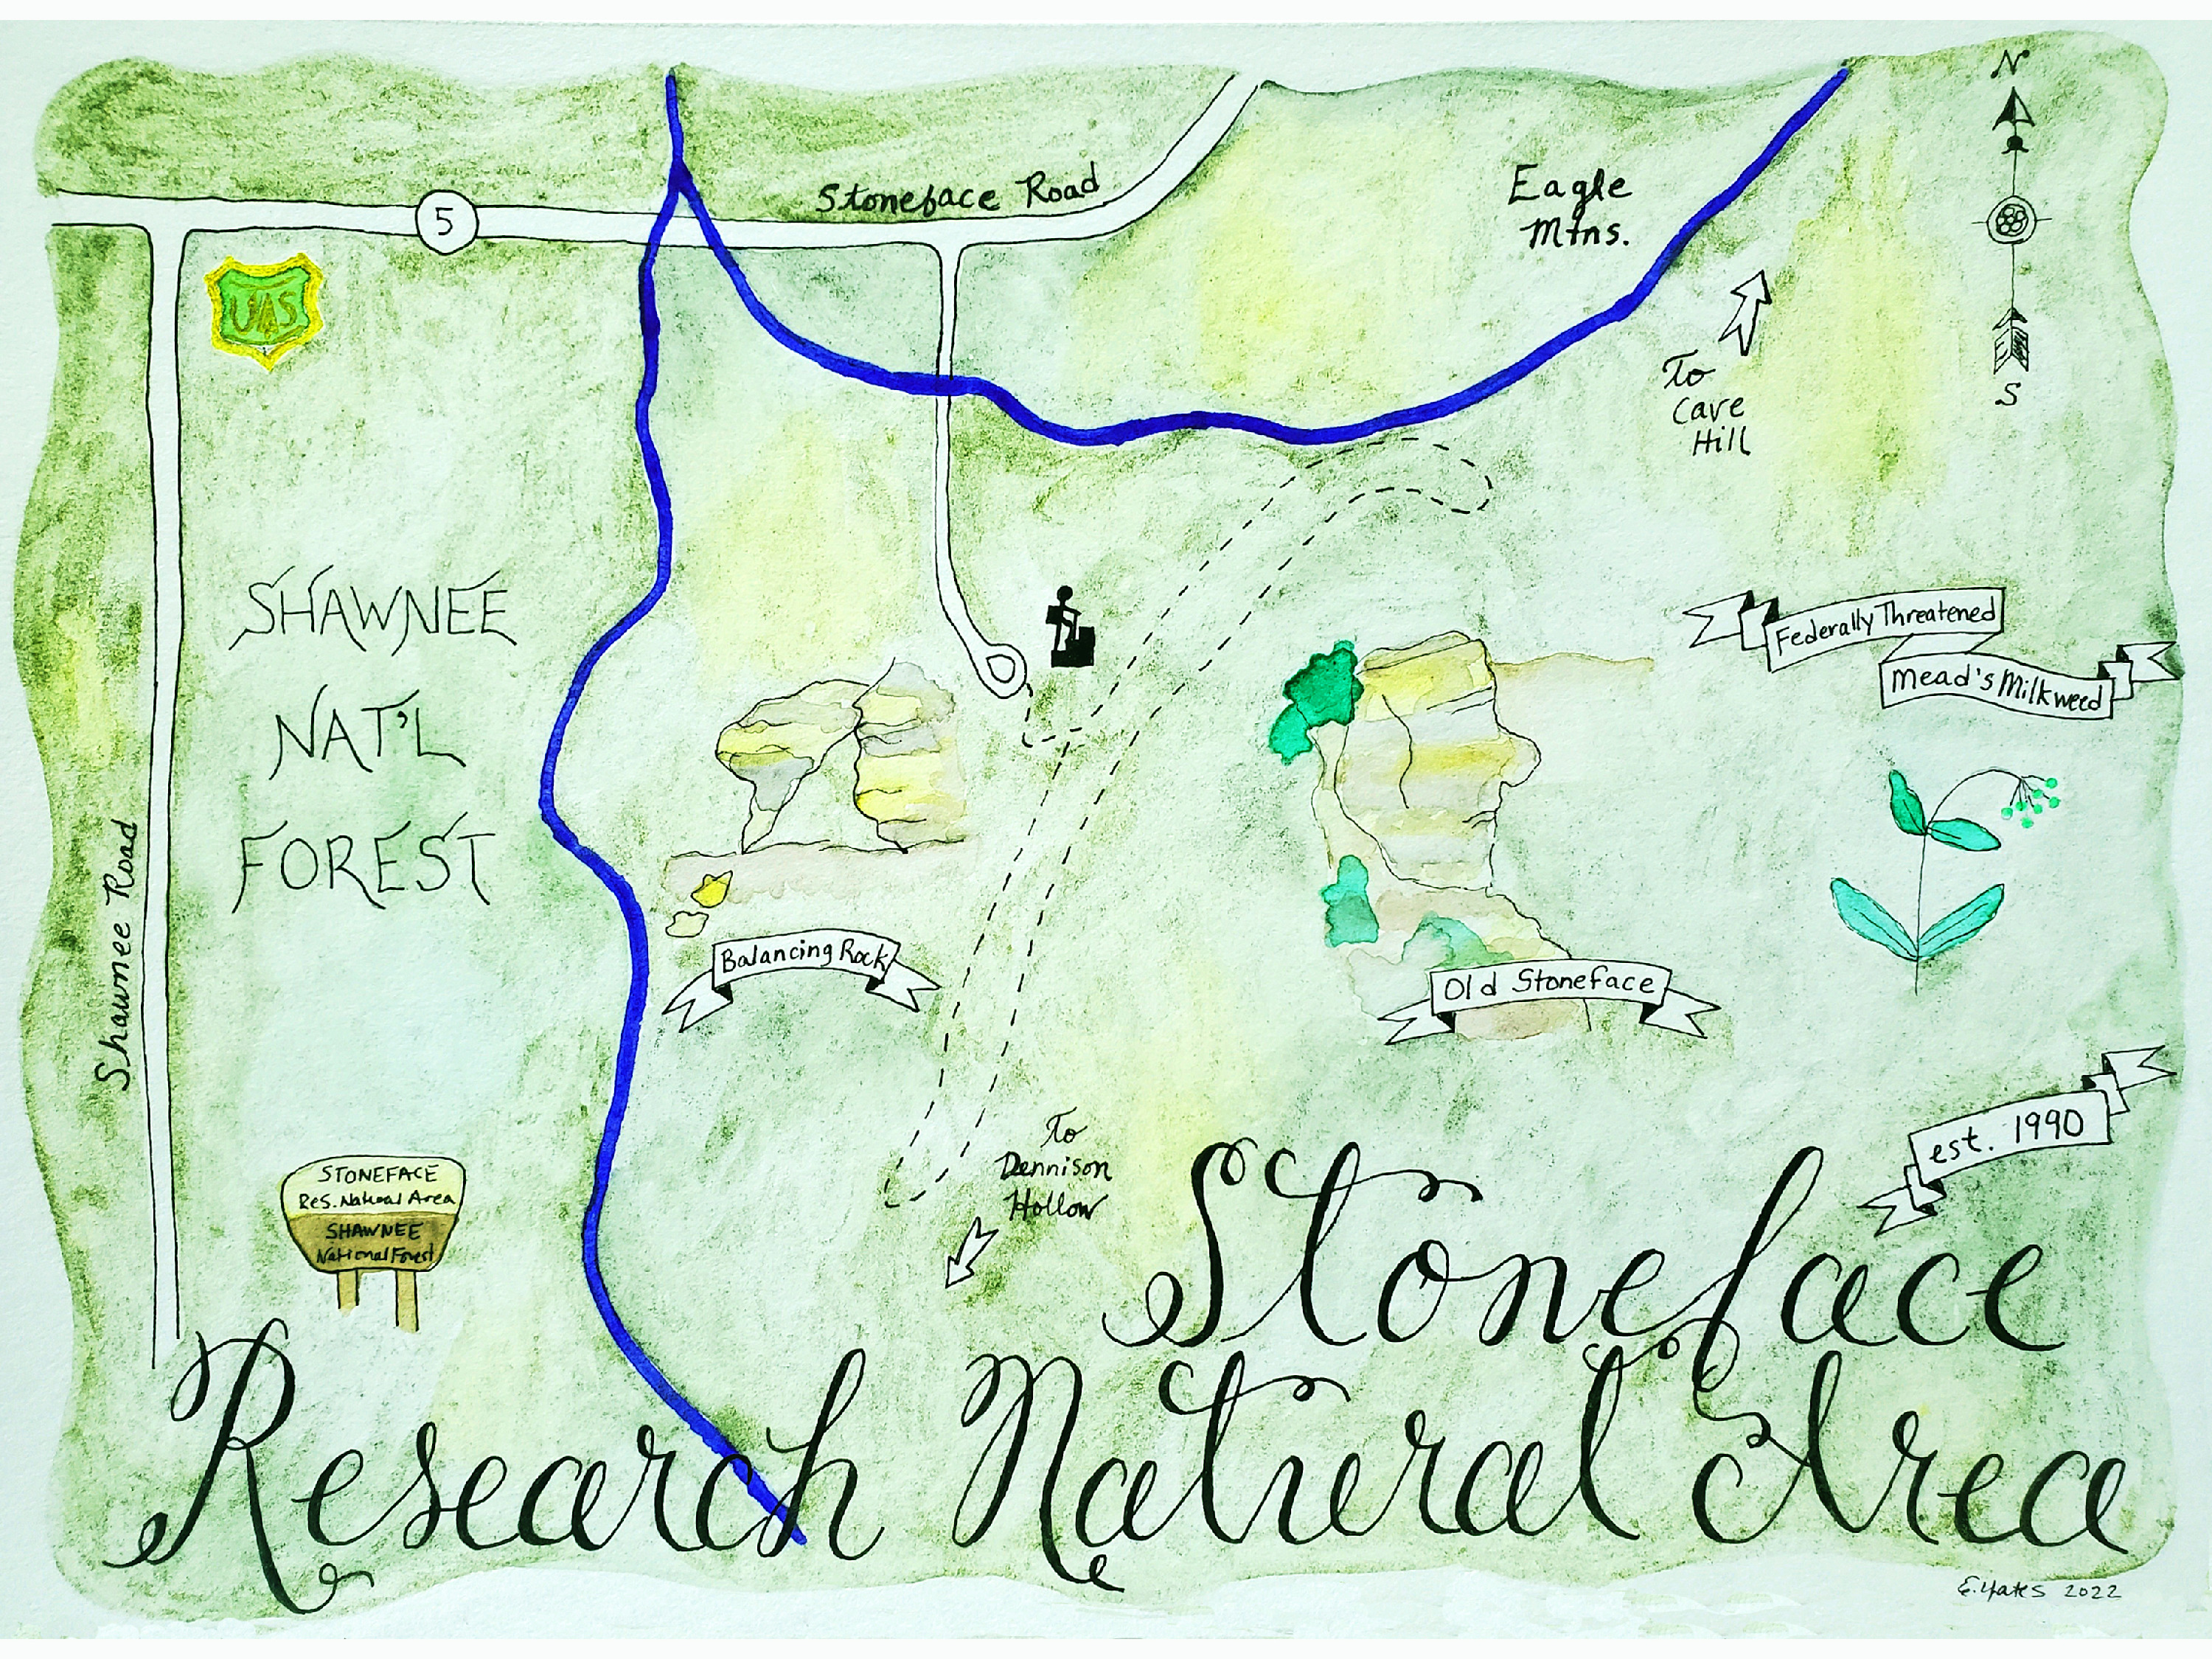 N
Stoneface Road
Eagle
Mtns.
5
UAS
To
Cave
Hill
S
SHAWNEE
NAT'L
FOREST
Federally Threatened
Mead's Milkweed
Shawnee Road
Balancing Rock
Old Stoneface
est. 1990
To
Dennison
Hollow
STONEFACE
Res. Natural Area
SHAWNEE
National Forest
Stoneface
Research Natural Area
E. Yates 2022